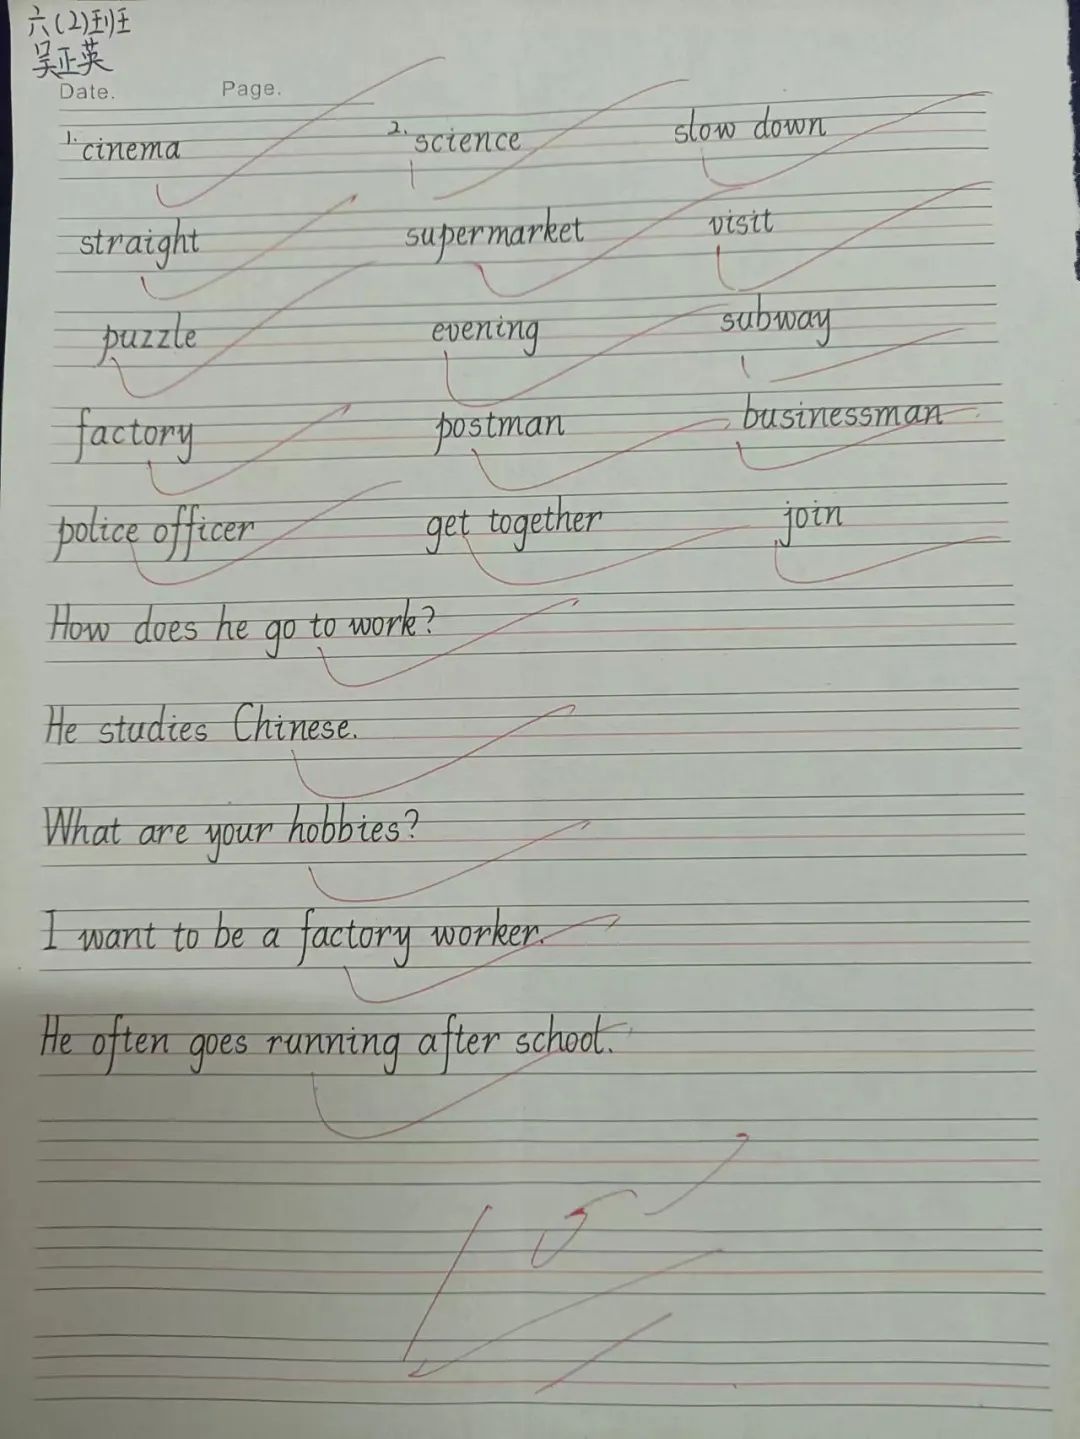 六(2)班
吴正英
Date. Page.
1. cinema 2. science slow down
straight supermarket visit
puzzle evening subway
factory postman businessman
police officer get together join
How does he go to work?
He studies Chinese.
What are your hobbies?
I want to be a factory worker.
He often goes running after school.